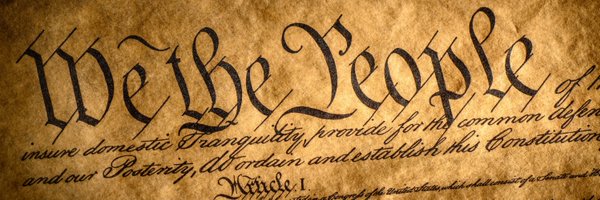 We the People of
insure domestic Tranquility, provide for the common defen
and our Posterity, do ordain and establish this Constitution
Article. I.
Congress of the United States, which shall consist of a Senate and